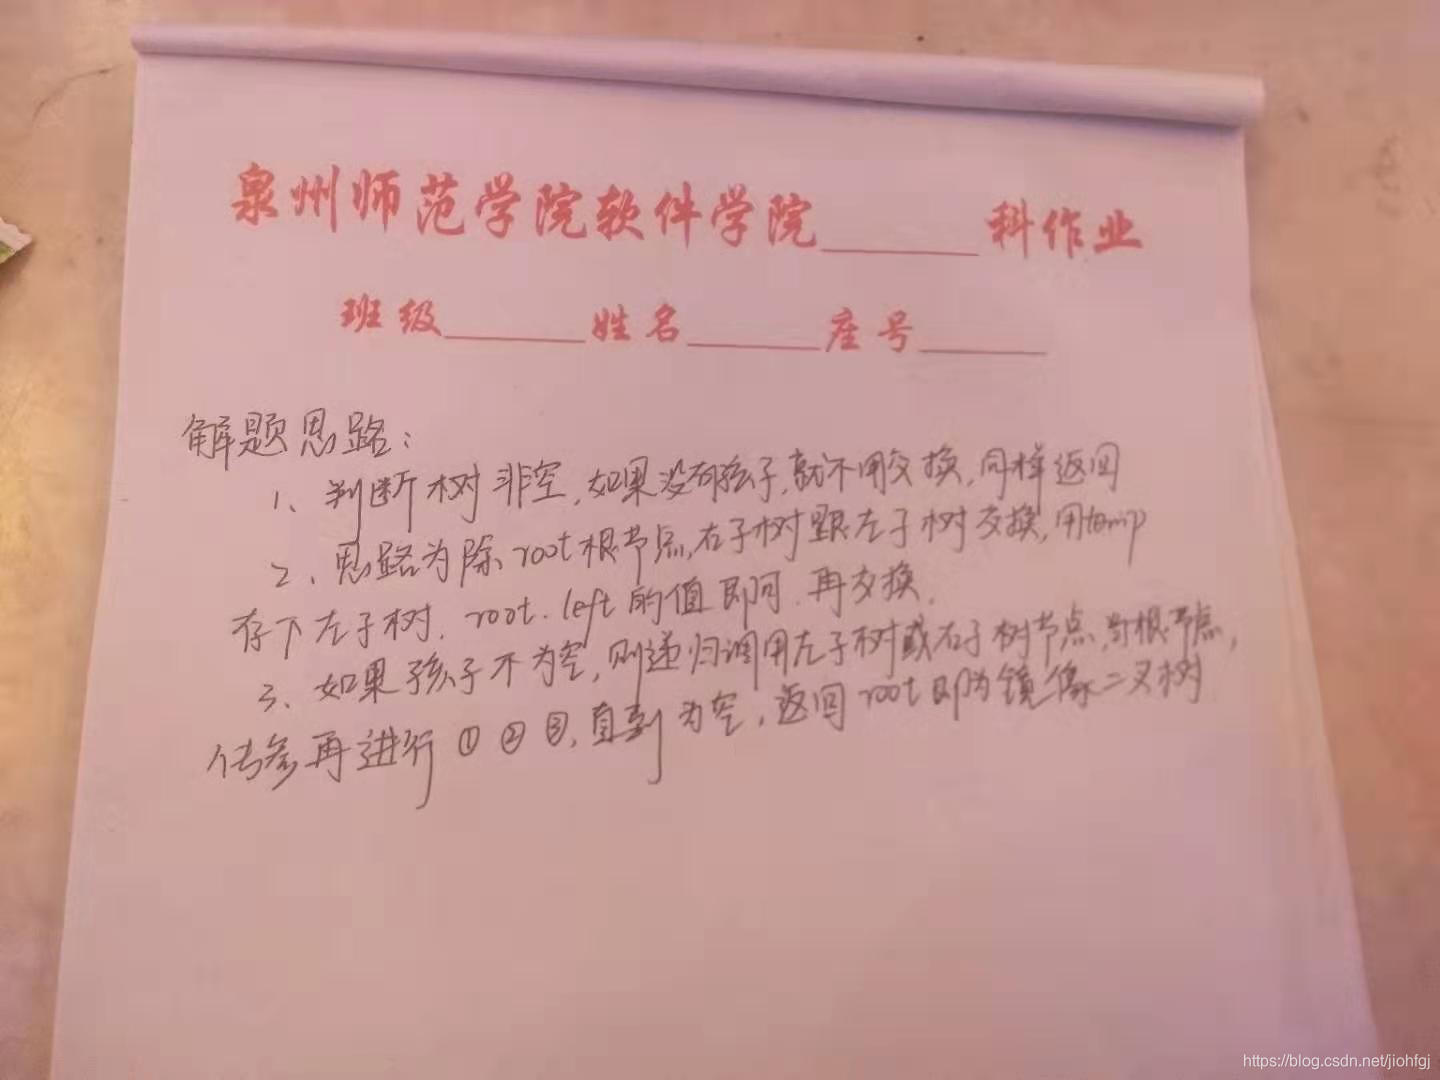 泉州师范学院软件学院______科作业
班级______姓名______座号______
解题思路：
1、判断树非空，如果没有孩子，就不用交换，同样返回
2、思路为除root根节点，右子树跟左子树交换，用temp
存下左子树．root.left的值即可．再交换．
3、如果孩子不为空，则递归调用左子树或右子树节点，当根节点，
传参再进行①②③，直到为空，返回root即为镜像二叉树
https://blog.csdn.net/jiohfgj